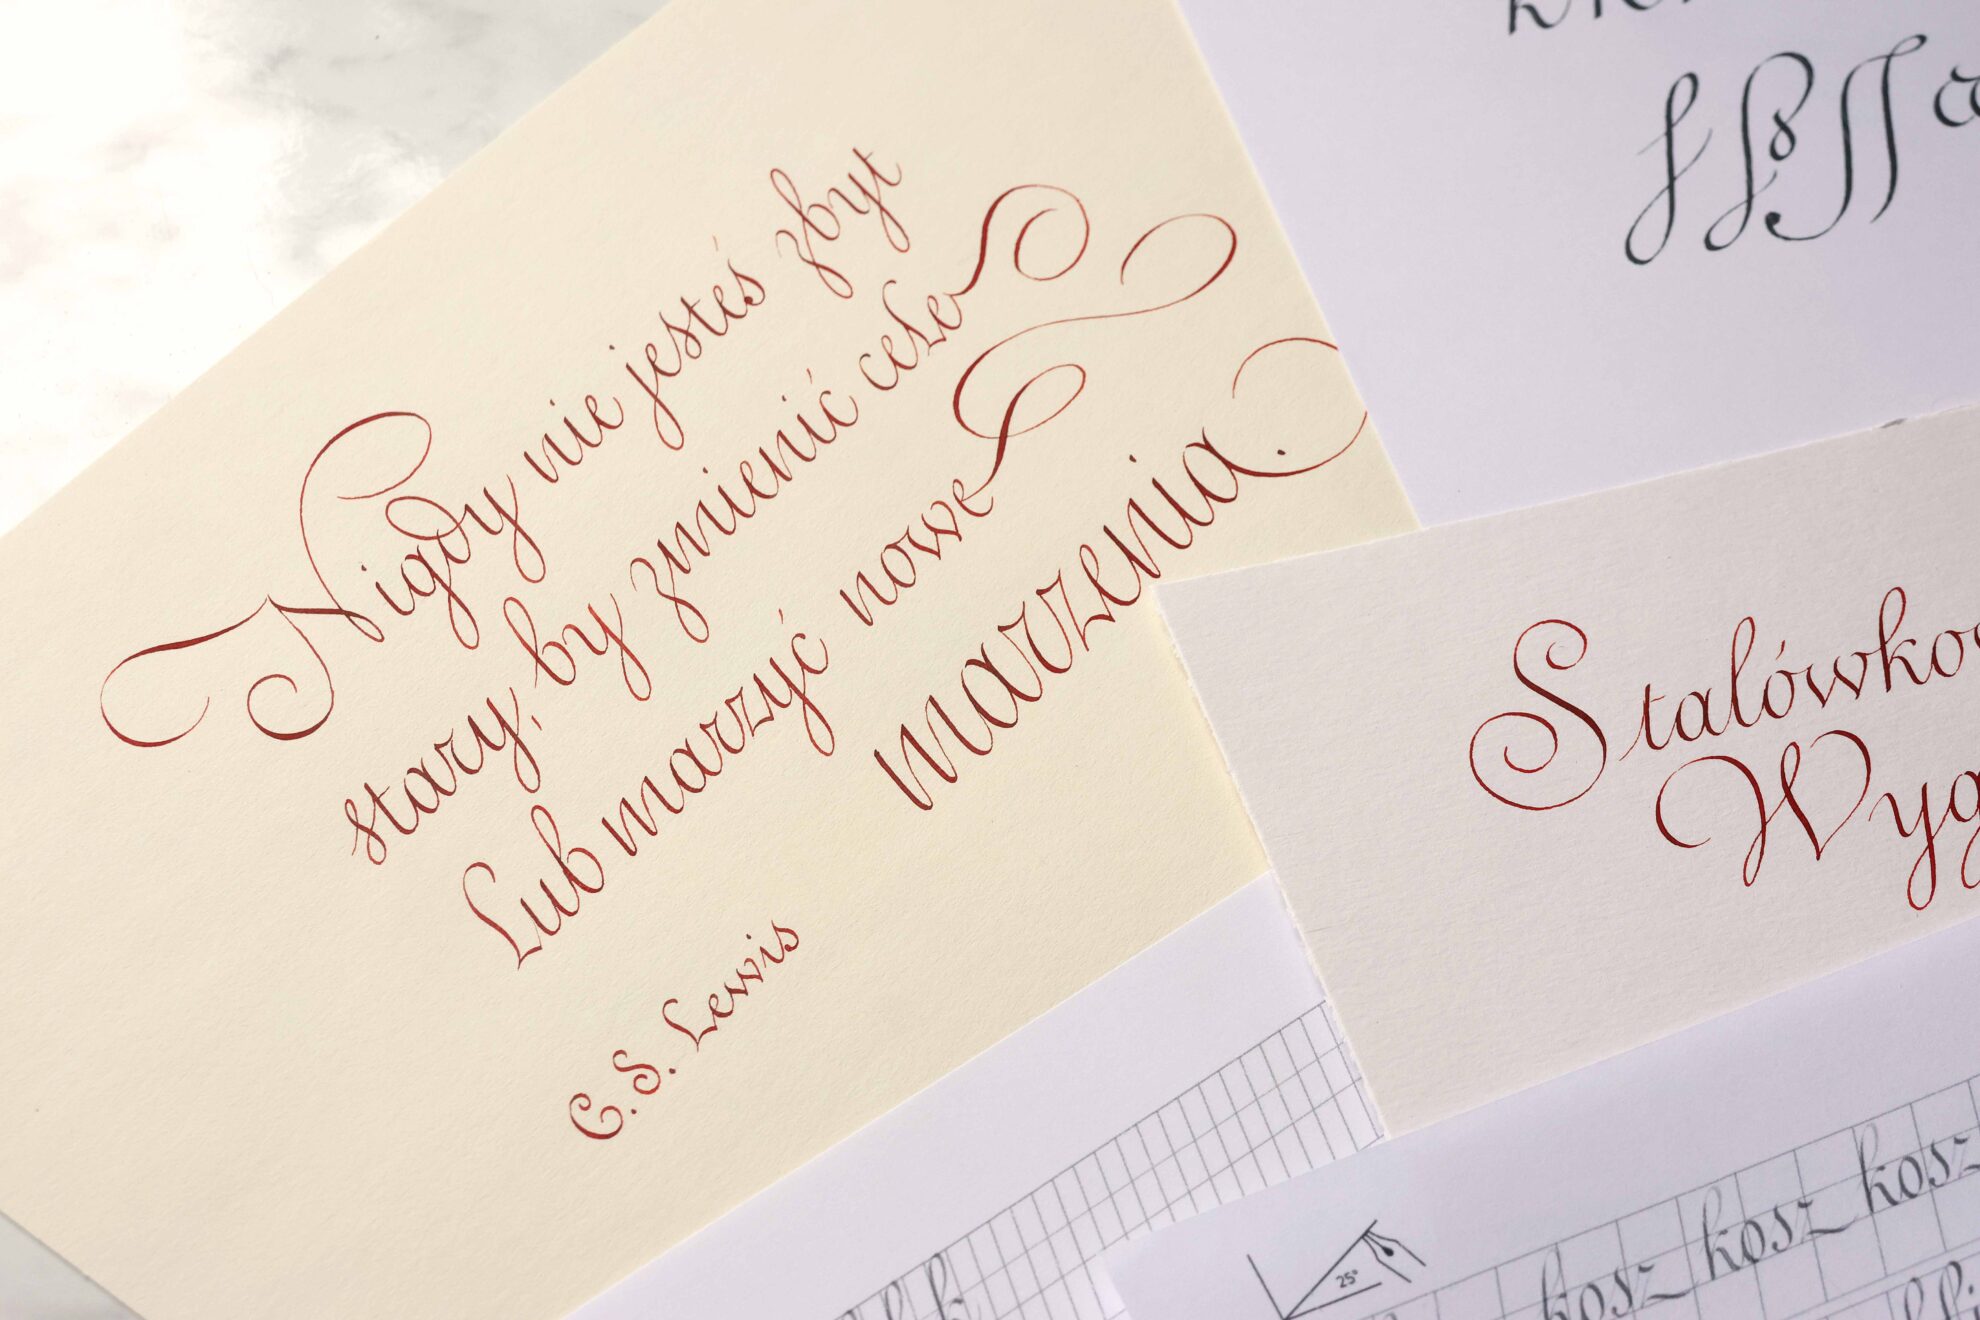 Nigdy nie jesteś zbyt
stary, by zmienić cele
Lub marzyć nowe
marzenia.
C.S. Lewis
25°
kosz kosz kosz